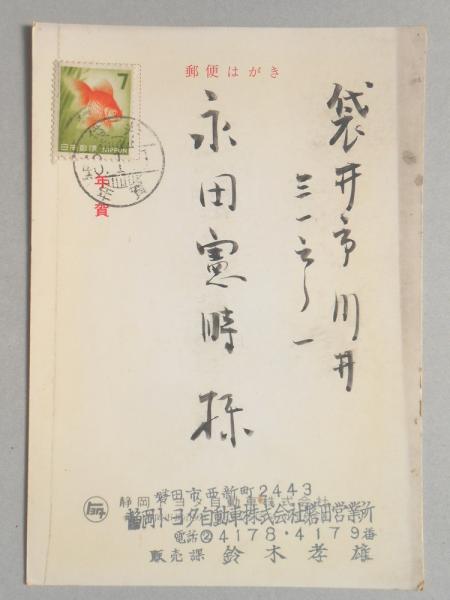 郵便はがき
7
日本郵便 NIPPON
年賀
袋井市川井
永田憲時様
磐田市西新町2443
静岡トヨタ自動車株式会社磐田営業所
電話②4178・4179番
販売課 鈴木孝雄